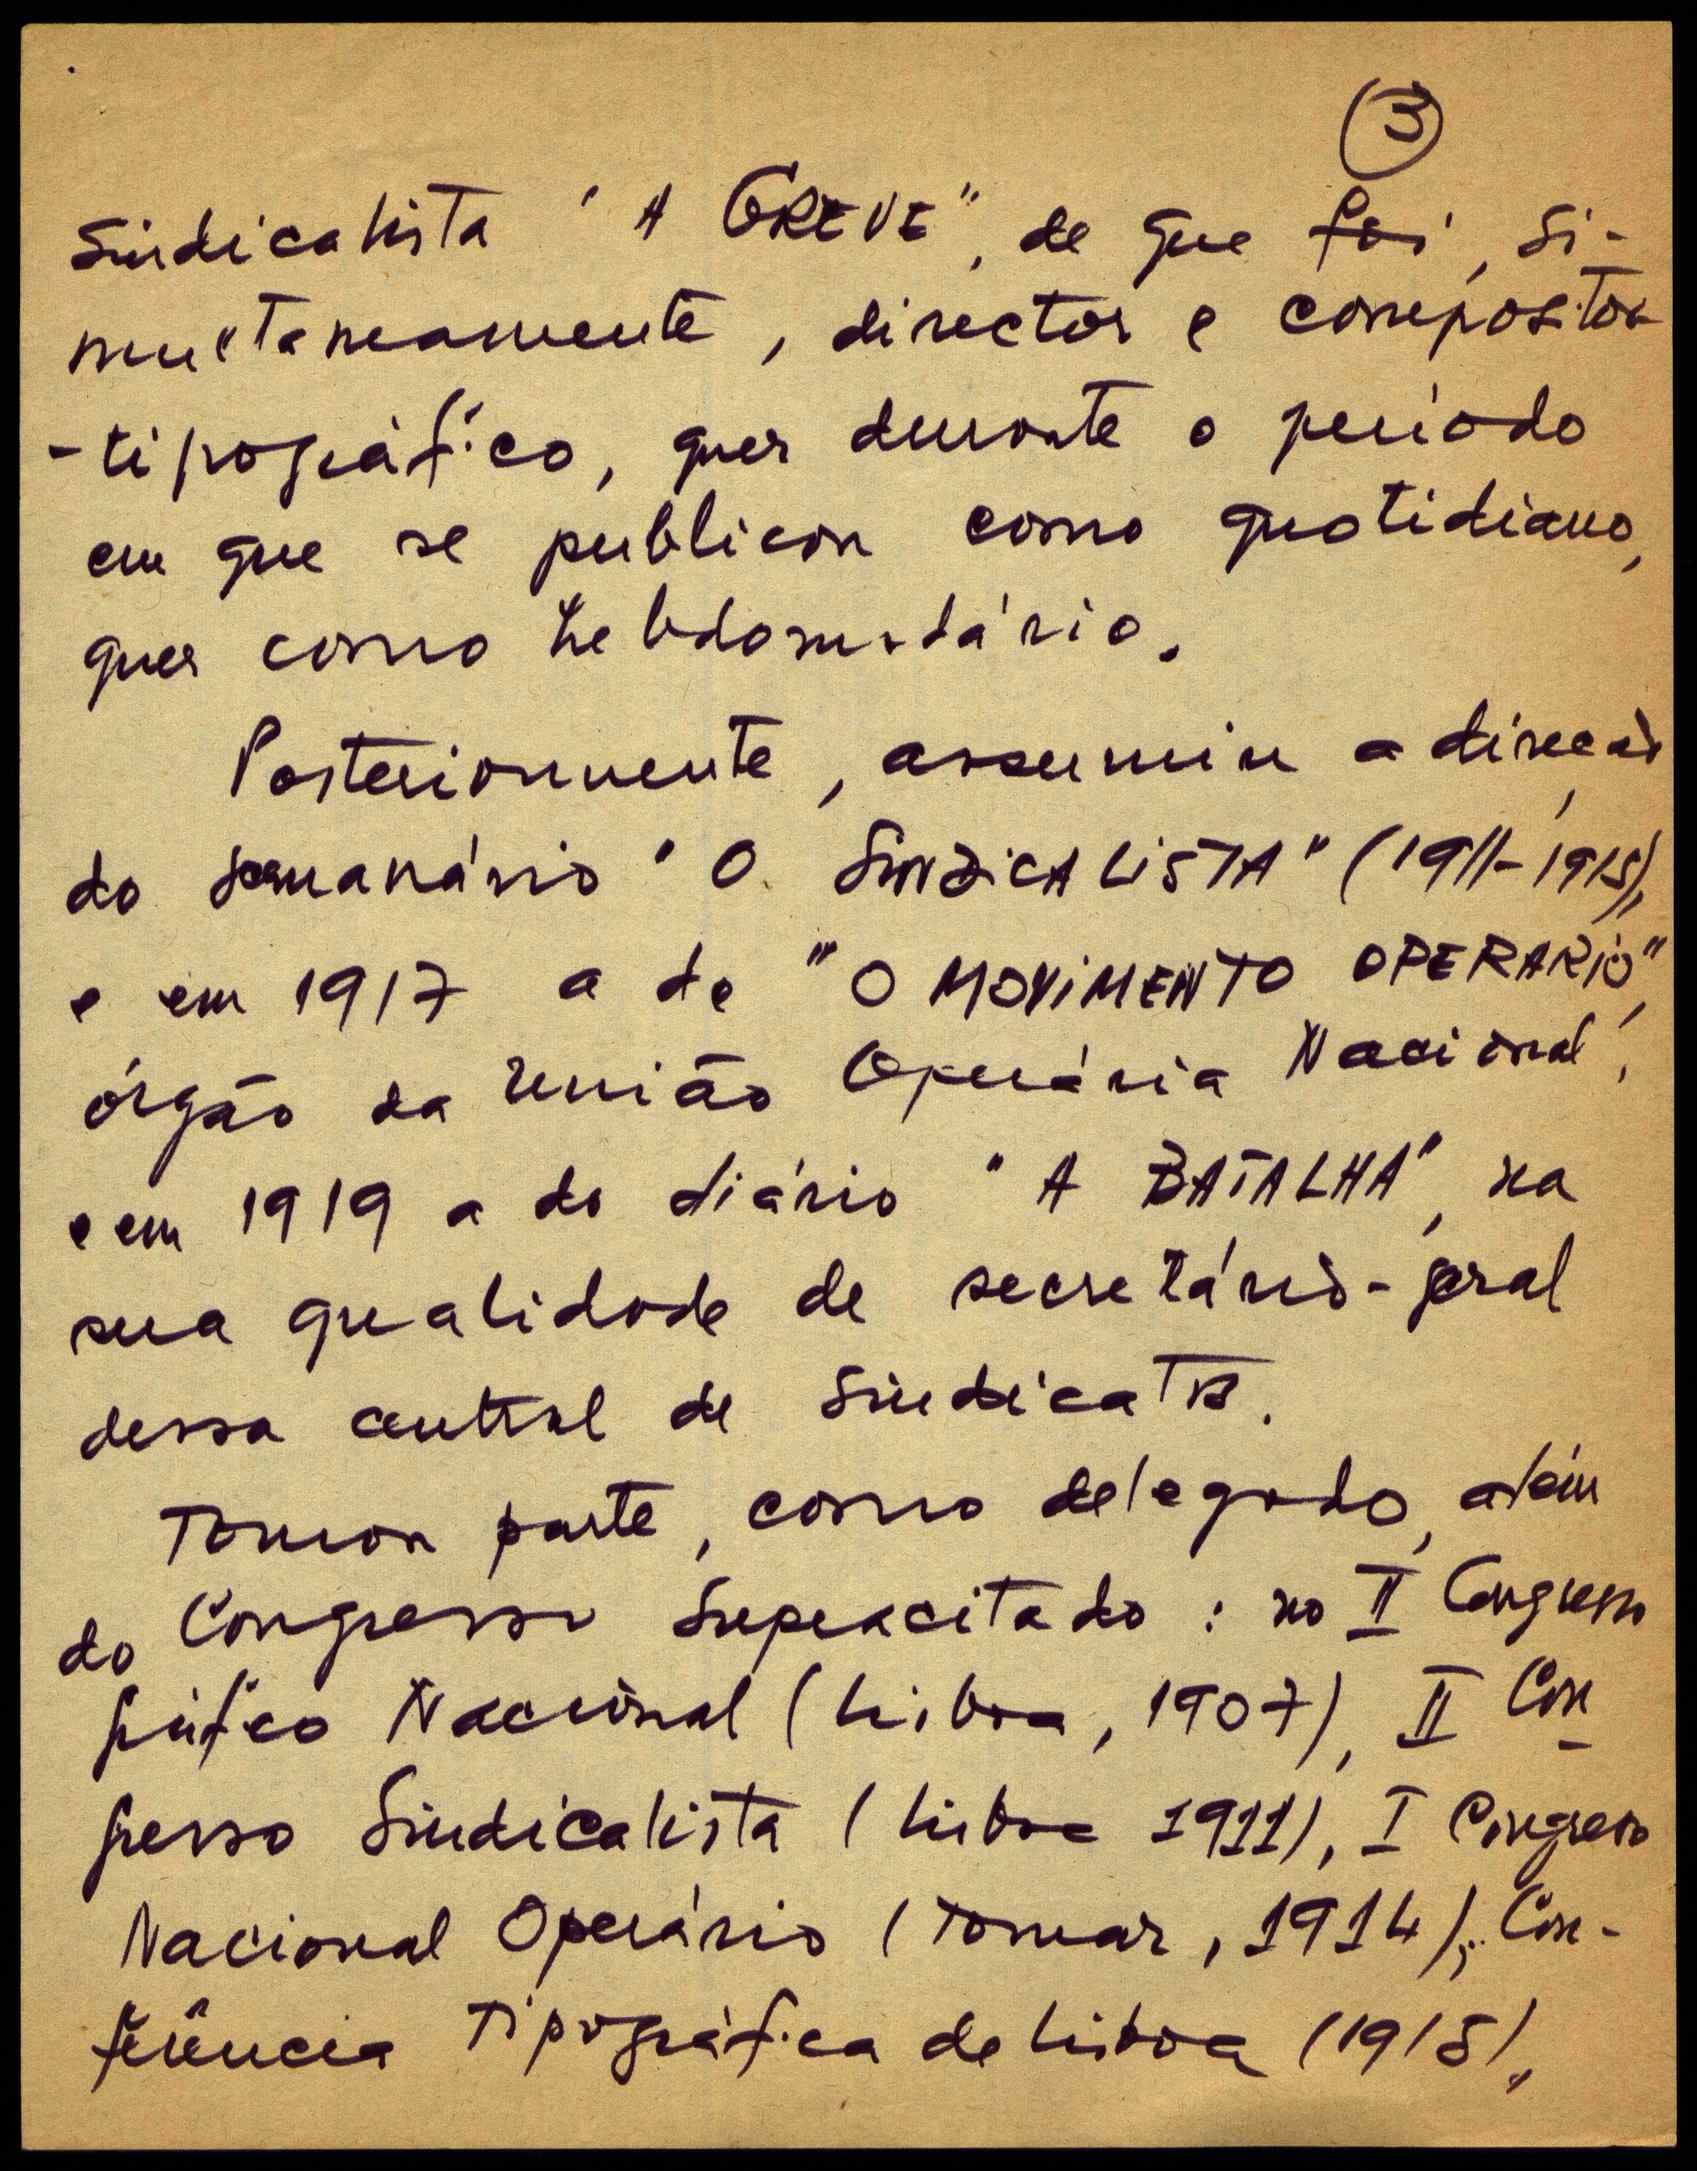 3
Sindicalista "A GREVE", de que foi, si-
multaneamente, director e compositor
-tipográfico, quer durante o período
em que se publicou como quotidiano,
quer como hebdomadário.
Posteriormente, assumiu a direcção
do semanário "O SINDICALISTA" (1911-1915),
e em 1917 a de "O MOVIMENTO OPERARIO",
órgão da União Operária Nacional,
e em 1919 a do diário "A BATALHA", na
sua qualidade de secretário-geral
dessa central de Sindicatos.
Tomou parte, como delegado, além
do Congresso Supracitado: no II Congresso
Gráfico Nacional (Lisboa, 1907), II Con-
gresso Sindicalista (Lisboa 1911), I Congresso
Nacional Operário (Tomar, 1914), Con-
ferência Tipográfica de Lisboa (1915),